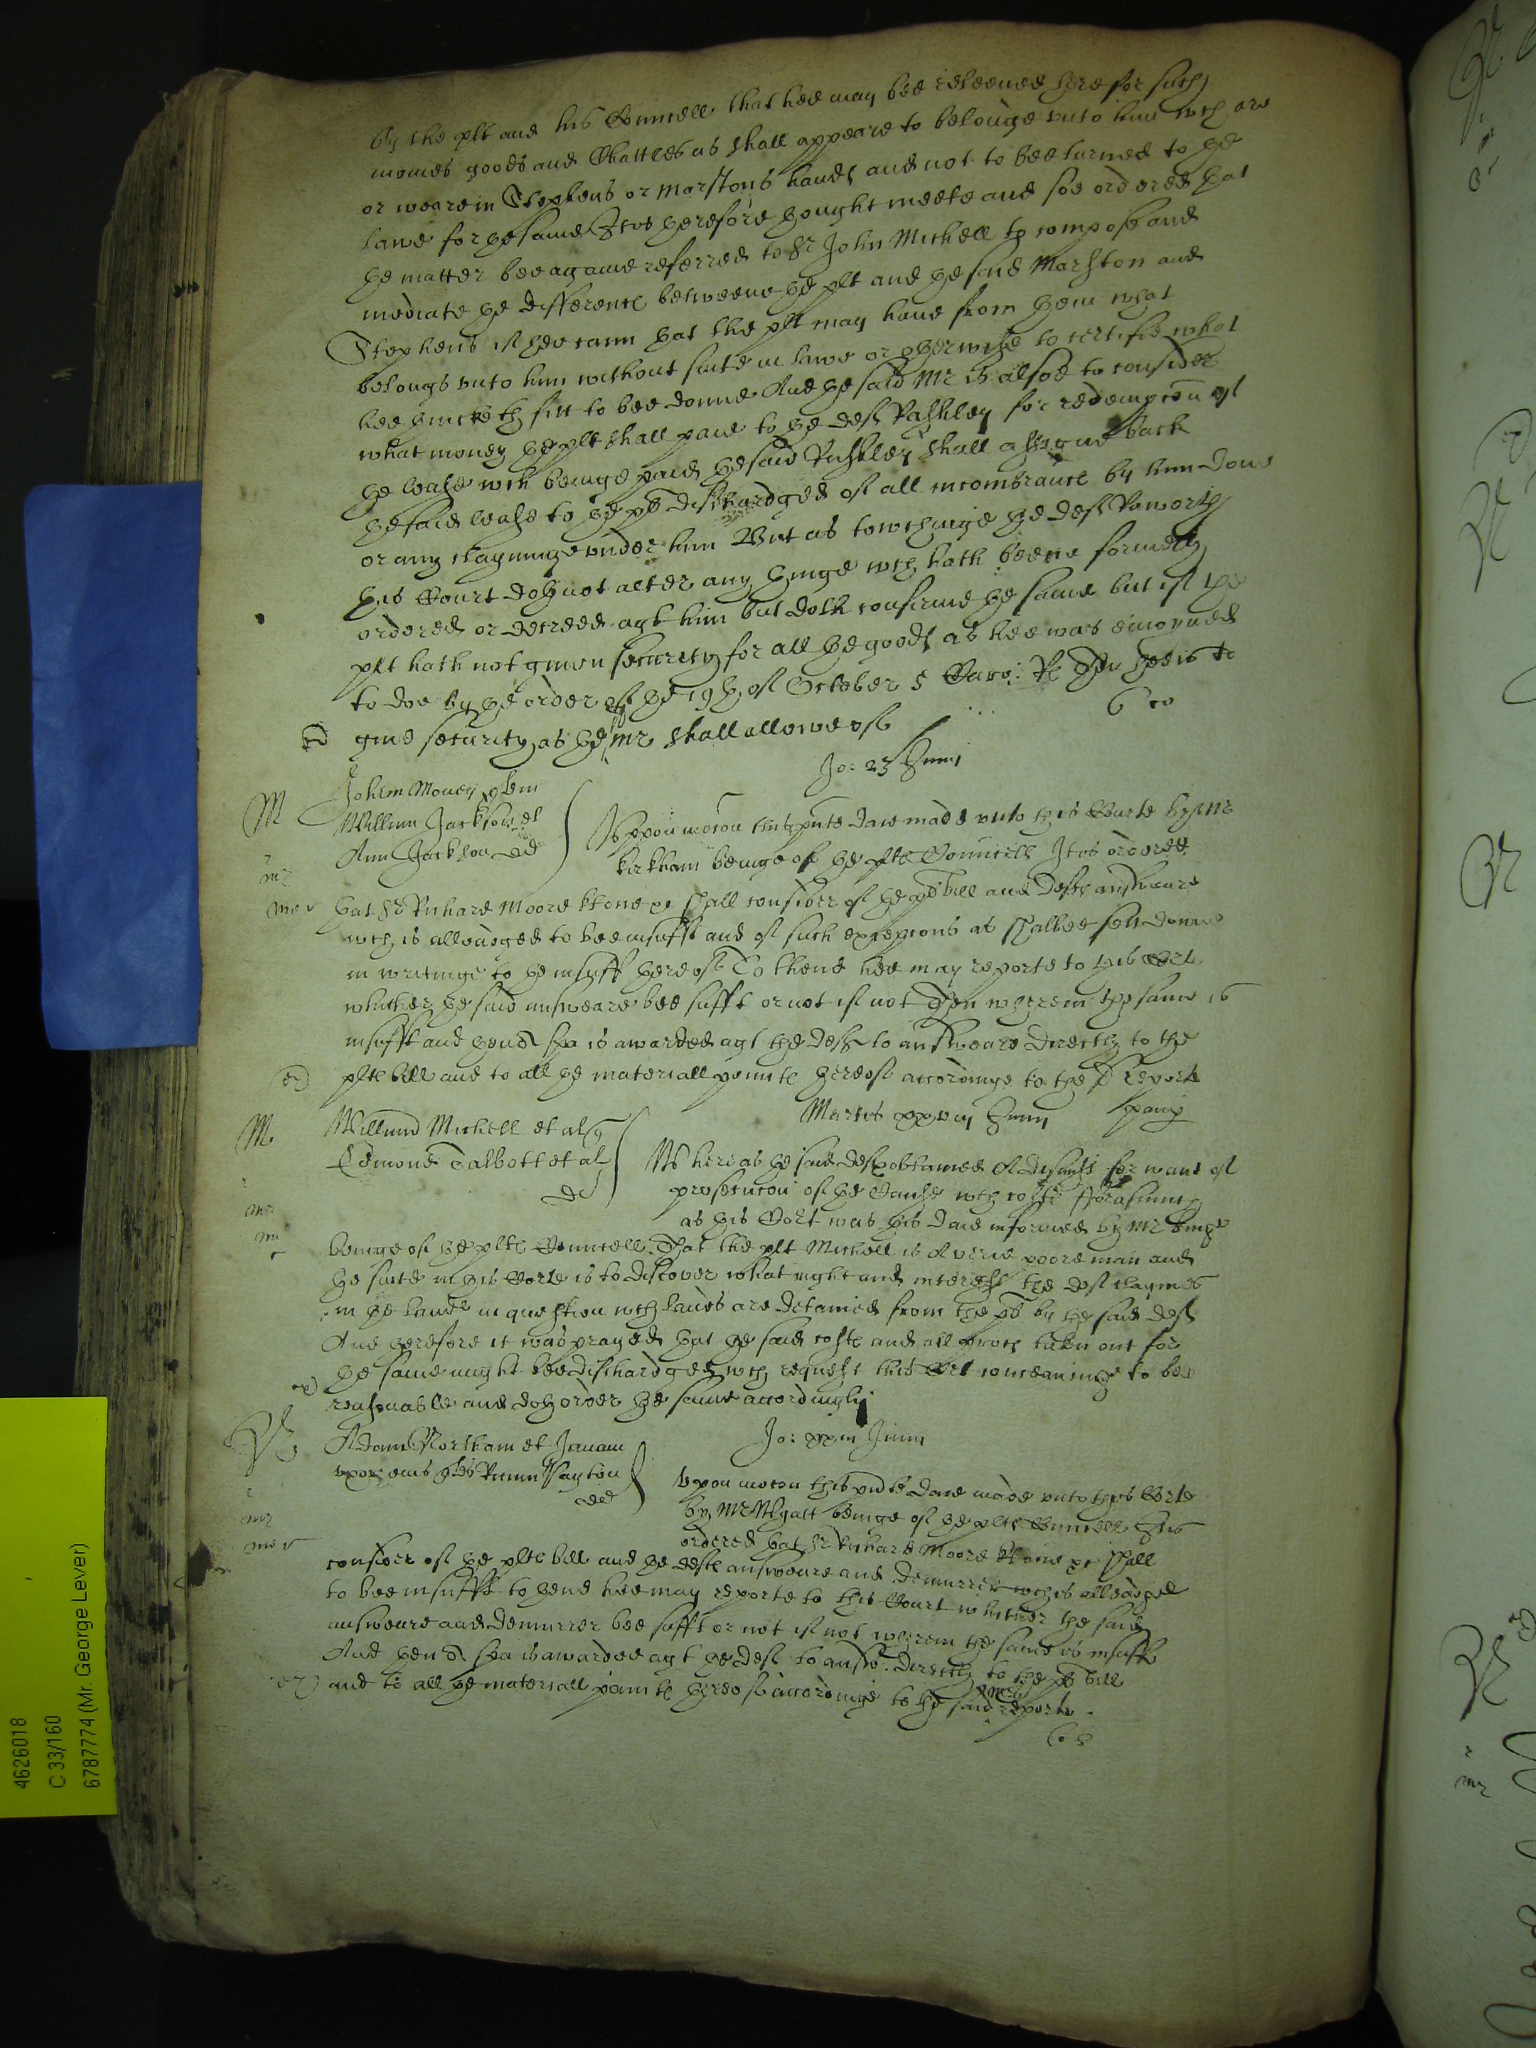 by the plt and his Counsell that hee may bee releeved here for such
monies goods and Chattles as shall appeare to belonge unto him wch are
or weare in Stephens or Marstons hands and not to bee turned to ye
lawe for ye same It is yerefore thought meete and soe ordered yat
ye matter bee againe referred to Sr John Michell to compose and
mediate ye difference betweene ye plt and ye said Marston and
Stephens if hee cann yat the plt may have from yem what
belongs unto him without suite in lawe or otherwise to certifie what
hee thinketh fitt to bee donne And ye said Mr is alsoe to consider
what money ye plt shall paie to ye deft Rashley for redempcon of
ye lease wch beinge paid ye said Rashley shall assigne back
ye said lease to ye plt dischardged of all incombrance by him done
or any clayminge under him But as towchinge ye deft
this Court doth not alter any thinge wch hath beene formerly
ordered or decreed agt him but doth confirme ye same but if ye
plt hath not given security for all ye goods as hee was enioyned
to doe by ye order of ye 19th of October 5 Caro: R then hee is to
give security as ye Mr shall allowe of
Jo: 23 Junii
John Money
William Jackson et
Ann Jackson deft
Uppon mocon this pnte daie made unto this Courte by Mr
Kirkham beinge of ye plts Councell It is ordered
yat Sr Richard Moore shall consider of ye plts bill and defts answeare
wch is alleadged to bee insufft and of such excepcons as shalbee sett downe
in writinge to ye insuff hereof To thend hee may reporte to this Cort
whither ye said answeare bee sufft or not if not then wherein the same is
insufft and then a spa is awarded agt the deft to answeare directly to the
plts bill and to all ye materiall points thereof accordinge to the sd reporte
Martis xxviii Junii
Willm Michell et al
Edmond Talbott et al
def
Whereas ye said deft obtained A dismiss for want of
prosecucon of ye Cause wth costs Forasmuch
as this Cort was this daie informed by Mr
beinge of ye plts Councell That the plt Michell is A verie poore man and
ye suite in this Corte is to discover what right and interest the deft claymes
in ye lands in question wch lands are detained from the plt by the said deft
And therefore it was prayed that ye said costs and all proces taken out for
ye same might bee dischardged wch request this Cort conceaving to bee
reasonable and doth order ye same accordingly
Jo: xxiii Junii
Adam Northam et Janam
uxor eius
def
Upon mocon this pnte daie made unto this Corte
by Mr beinge of ye plts Councell It is
ordered yat Sr Richard Moore shall
consider of ye plts bill and ye defts answeare and demurrer wch is alleadged
to bee insufft to thend hee may reporte to this Court whither the said
answeare and demurrer bee sufft or not if not wherein the same is insufft
And then a spa is awarded agt ye deft to answ. directly to the plts bill
and to all ye materiall points thereof accordinge to the said reporte
4626018
C 33/160
6787774 (Mr. George Lever)